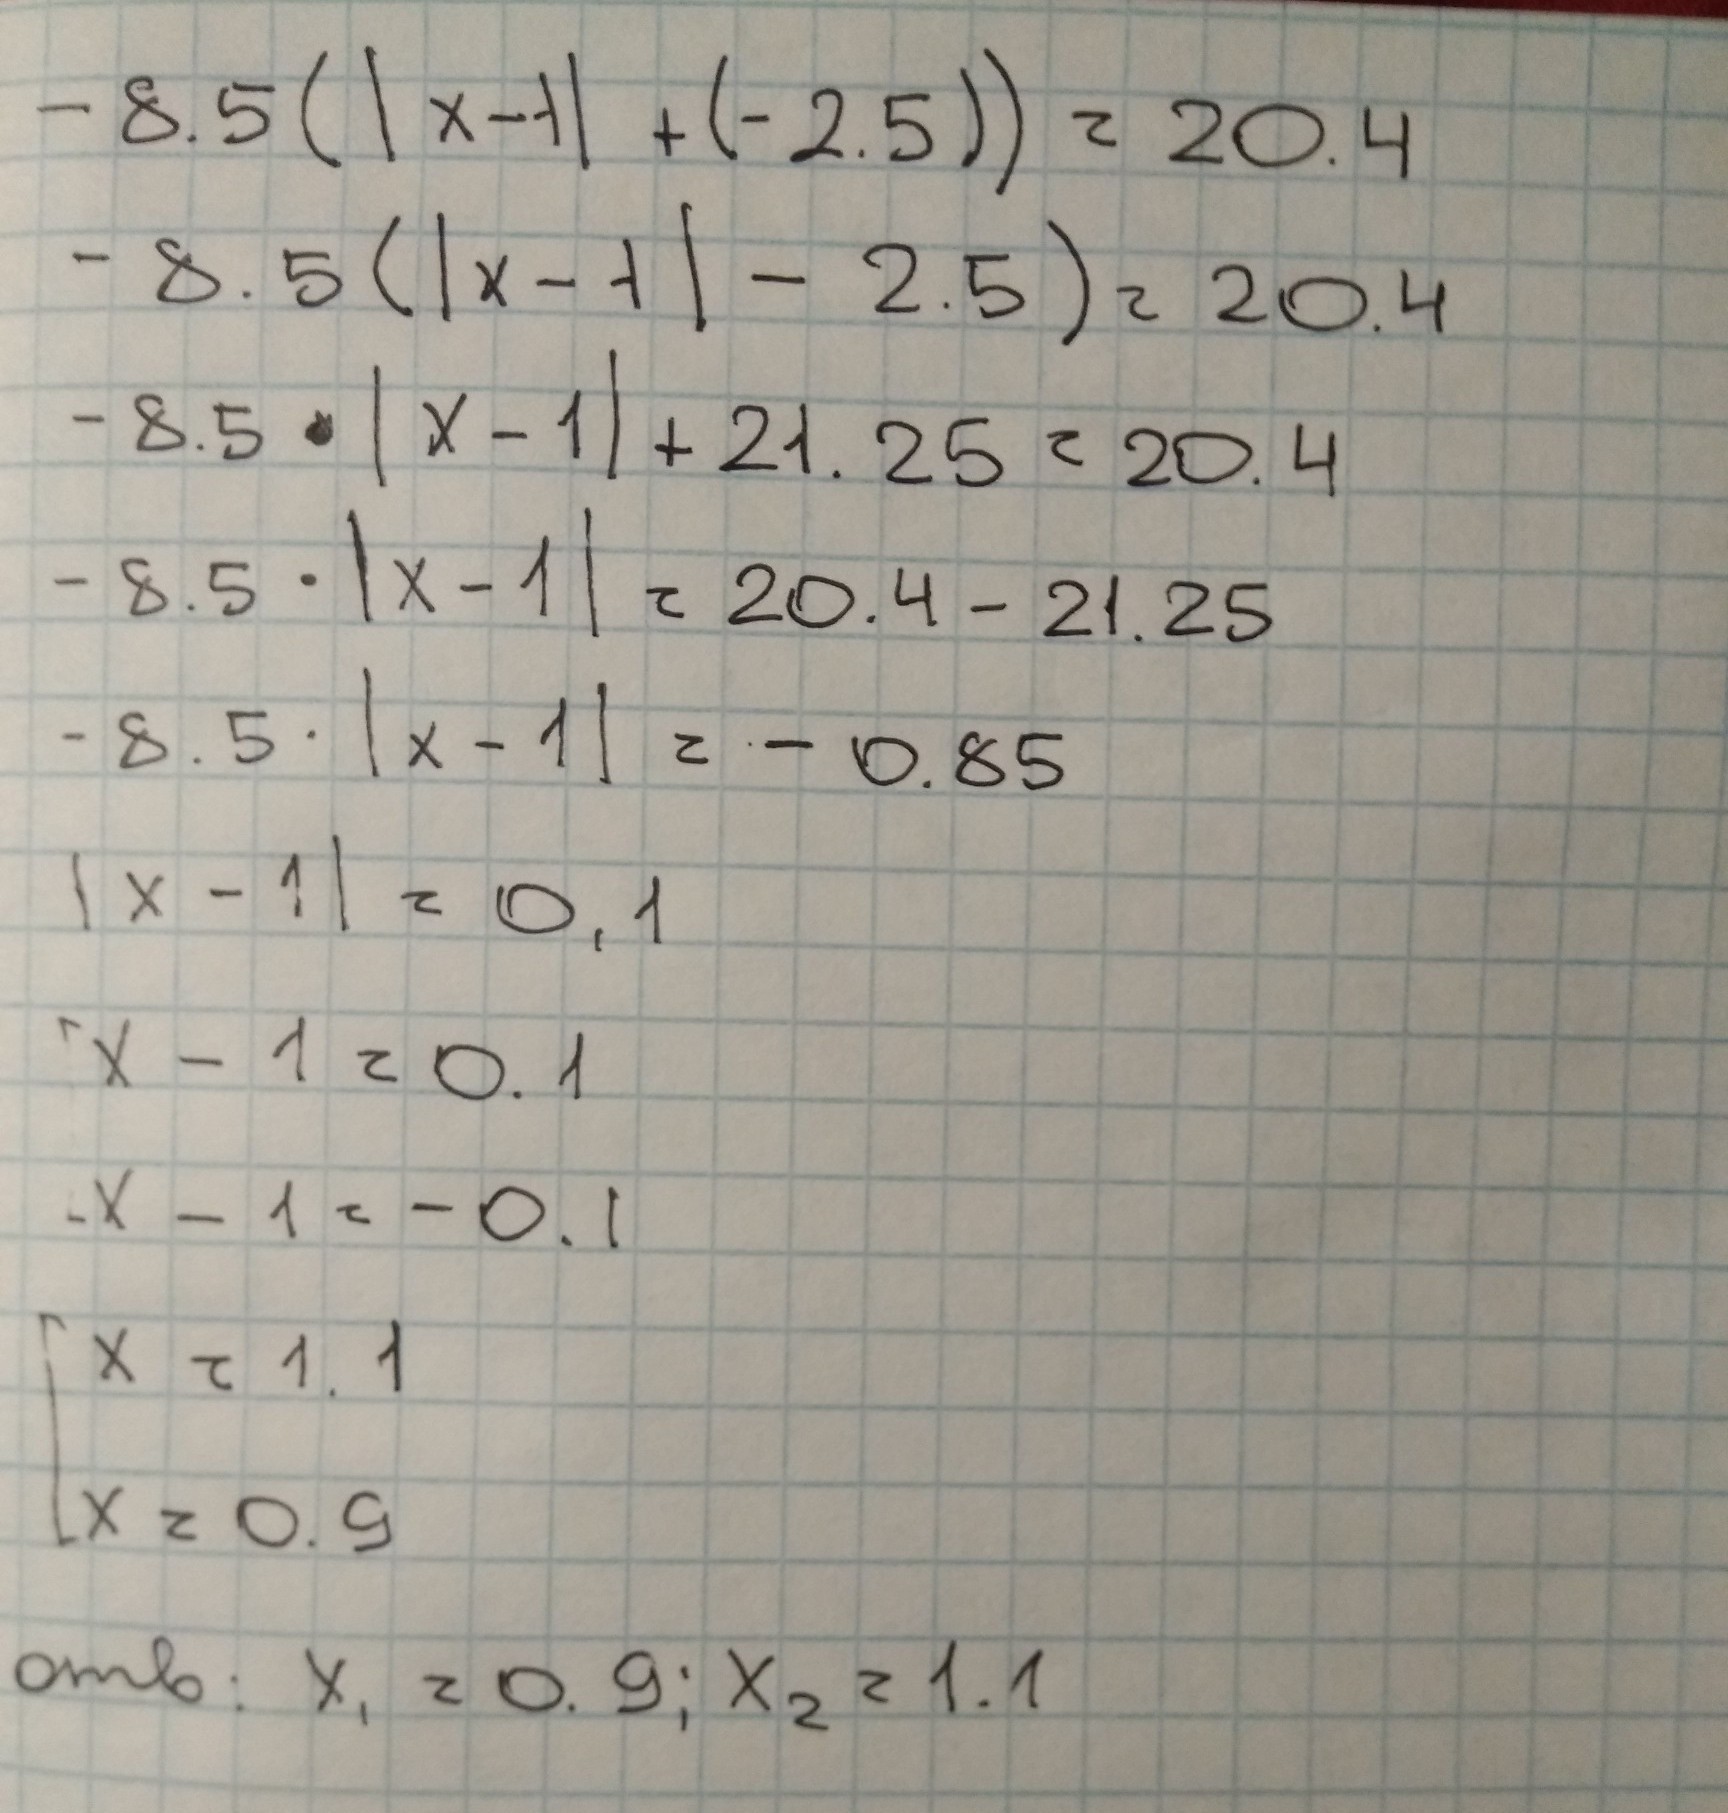 -8.5(|x-1| + (-2.5)) = 20.4
-8.5(|x-1| - 2.5) = 20.4
-8.5 · |x-1| + 21.25 = 20.4
-8.5 · |x-1| = 20.4 - 21.25
-8.5 · |x-1| = -0.85
|x-1| = 0,1
x - 1 = 0.1
x - 1 = -0.1
x = 1.1
x = 0.9
отв: x₁ = 0.9; x₂ = 1.1